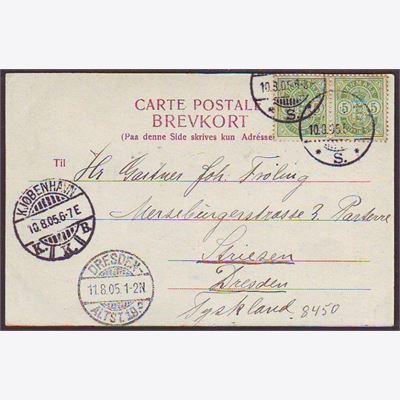 CARTE POSTALE
BREVKORT
(Paa denne Side skrives kun Adressen)
10.8.05.6-
S.
10.8.05.
S.
5 5
Til
Hr Gartner Joh. Fröling
Merseburgerstrasse 3 Parterre
Striesen
Dresden
Tyskland
8450
KJØBENHAVN
10.8.05.6-7E
K. K. B.
DRESDEN-
11.8.05.1-2N
ALTST.